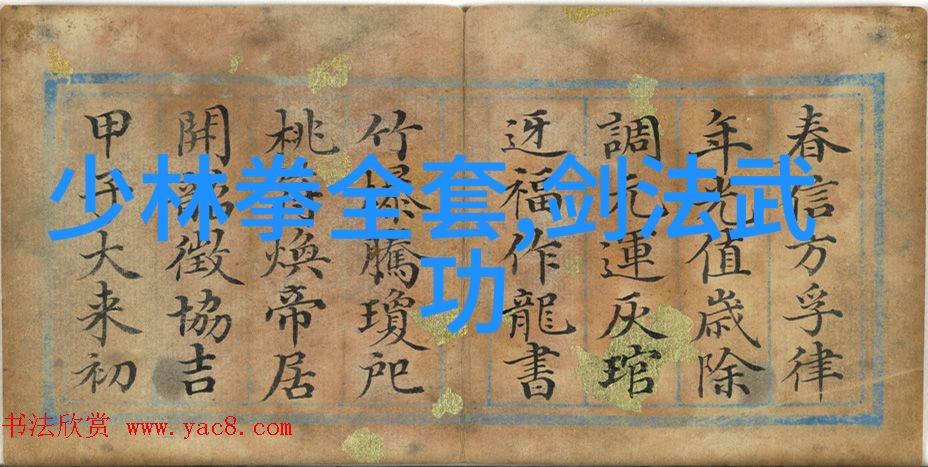 少林拳全套,剑法武
功
春信方孚律
年光值歲除
調元運灰琯
迓福作龍書
竹爆騰瓊戺
桃符煥帝居
開韶徵協吉
甲子大来初
书法欣赏 www.yac8.com